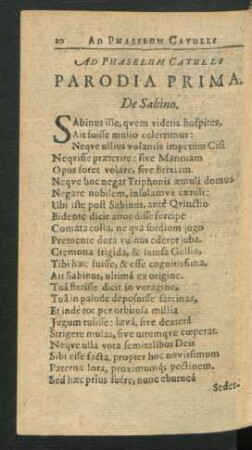 20 AD PHASELUM CATULLI
AD PHASELUM CATULLI
PARODIA PRIMA.
De Sabino.
SAbinus ille, qvem videtis hospites,
Ait fuisse mulio celerrimus:
Neqve ullius volantis impetum Cisi
Neqvisse præterire: sive Mantuam
Opus foret volare, sive Brixiam.
Neqve hoc negat Tryphonis æmuli domus
Negare nobilem, insulamve cæruli:
Ubi iste post Sabinus, antè Qvinctio
Bidente dicit attodisse forcipe
Comata colla, ne qvâ sordium jugo
Premente dura vulnus ederet juba.
Cremona frigida, & lutosa Gallia,
Tibi hæc fuisse, & esse cognitissima,
Ait Sabinus, ultimâ ex origine.
Tuâ stetisse dicit in voragine,
Tuâ in palude deposuisse sarcinas,
Et inde tot per orbitosa millia
Jugum tulisse: lævâ, sive dexterâ
Strigare mulas, sive utrumqve cœperat.
Neqve ulla vota semitalibus Deis
Sibi esse facta, propter hoc novissimum
Paterna lora, proximumq; pectinem.
Sed hæc prius fuêre, nunc eburneâ
Sedet-